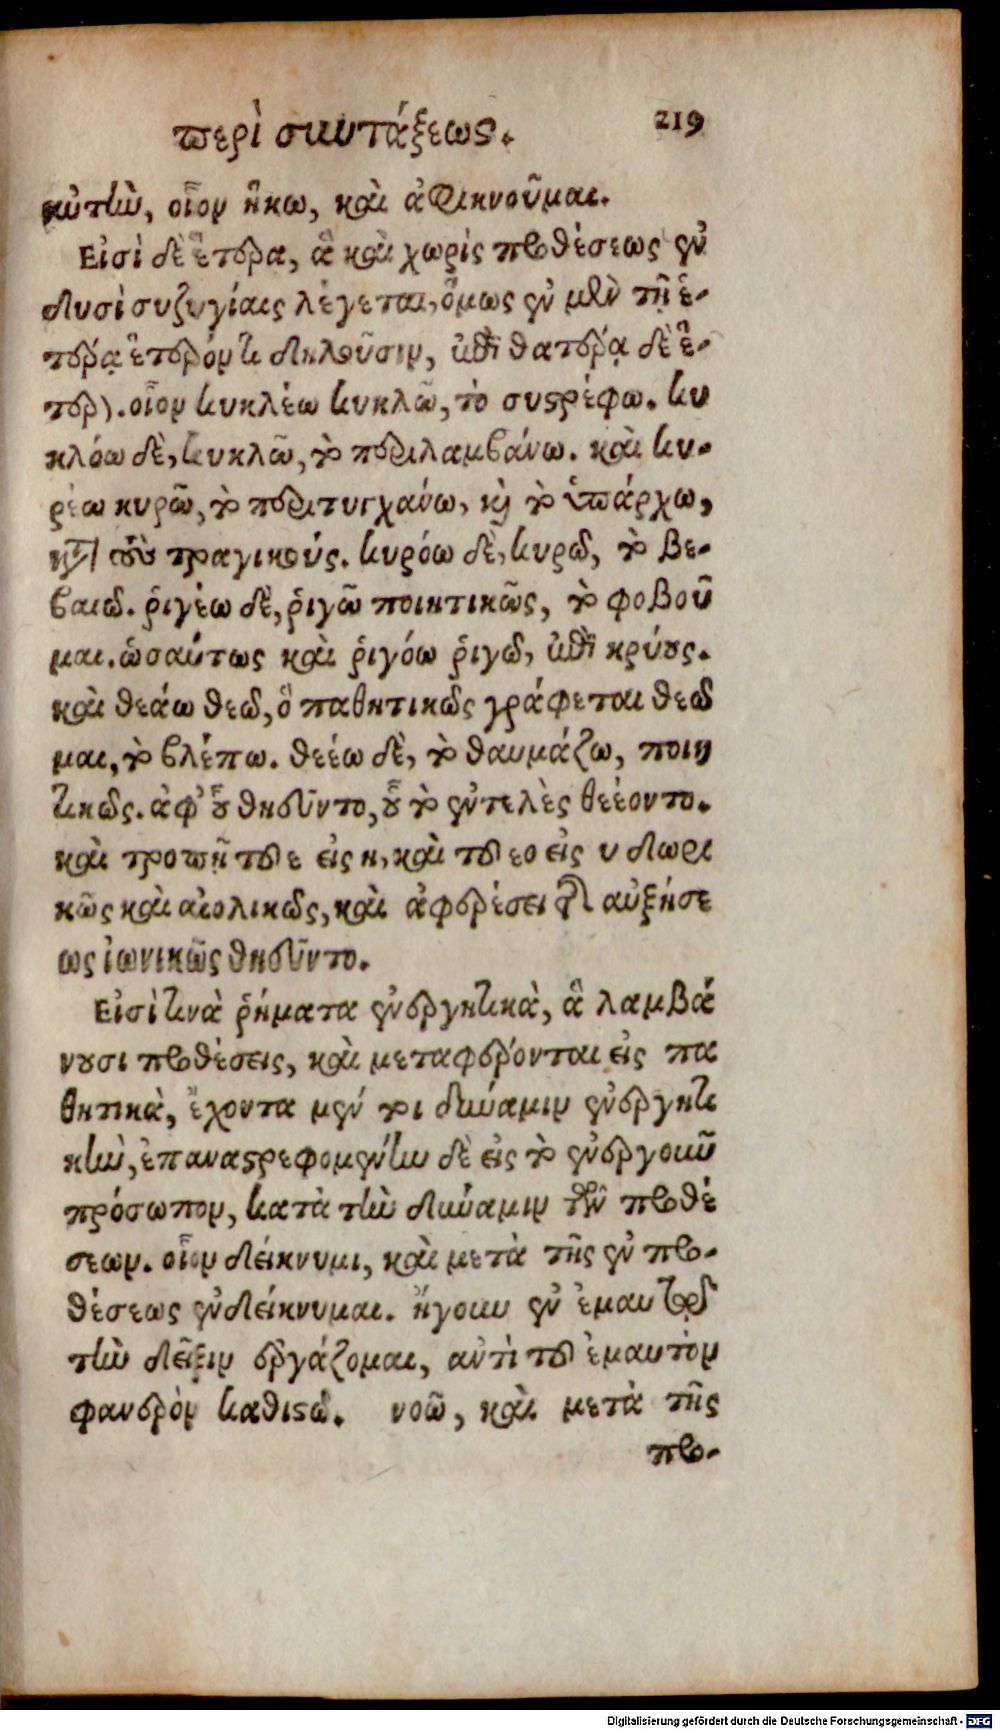 περὶ συντάξεως. 219
αὐτὴν, οἷον ἥκω, καὶ ἀφικνοῦμαι.
Εἰσὶ δὲ ἕτερα, ἃ καὶ χωρὶς προθέσεως ἐν
δυσὶ συζυγίαις λέγεται, ὅμως ἐν μὲν τῇ ἑ-
τέρᾳ ἕτερόν τι δηλοῦσιν, ἐπὶ θατέρᾳ δὲ ἕ-
τερον. οἷον κυκλέω κυκλῶ, τὸ συστρέφω. κυ
κλόω δὲ, κυκλῶ, τὸ περιλαμβάνω. καὶ κυ-
ρέω κυρῶ, τὸ περιτυγχάνω, καὶ τὸ ὑπάρχω,
κατὰ τοὺς τραγικούς. κυρόω δὲ, κυρῶ, τὸ βε-
βαιῶ. ῥιγέω δὲ, ῥιγῶ ποιητικῶς, τὸ φοβοῦ
μαι. ὡσαύτως καὶ ῥιγόω ῥιγῶ, ἐπὶ κρύους.
καὶ θεάω θεῶ, ὃ παθητικῶς γράφεται θεῶ
μαι, τὸ βλέπω. θεέω δὲ, τὸ θαυμάζω, ποιη
τικῶς. ἀφ' οὗ θηεῦντο, οὗ τὸ ἐντελὲς θεέοντο.
καὶ τροπῇ τοῦ ε εἰς η, καὶ τοῦ εο εἰς υ δωρι
κῶς καὶ αἰολικῶς, καὶ ἀφαιρέσει τῆς αὐξήσε
ως ἰωνικῶς θηεῦντο.
Εἰσὶ τινὰ ῥήματα ἐνεργητικὰ, ἃ λαμβά
νουσι προθέσεις, καὶ μεταφέρονται εἰς πα
θητικὰ, ἔχοντα μέν τοι δύναμιν ἐνεργητι
κὴν, ἐπαναστρεφομένην δὲ εἰς τὸ ἐνεργοῦν
πρόσωπον, κατὰ τὴν δύναμιν τῶν προθέ
σεων. οἷον δείκνυμι, καὶ μετὰ τῆς ἐν προ-
θέσεως ἐνδείκνυμαι. ἤγουν ἐν ἐμαυτῷ
τὴν δεῖξιν ἐργάζομαι, ἀντὶ τοῦ ἐμαυτὸν
φανερὸν καθιστῶ. νοῶ, καὶ μετὰ τῆς
προ-
Digitalisierung gefördert durch die Deutsche Forschungsgemeinschaft - DFG